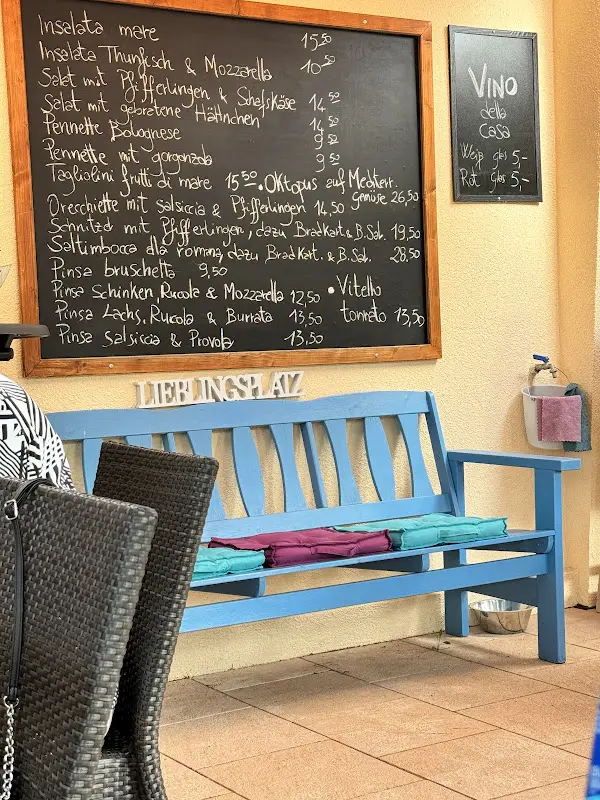 Insalata mare 15⁵⁰
Insalata Thunfisch & Mozzarella 10⁵⁰
Salat mit Pfifferlingen & Shafskäse 14⁵⁰
Salat mit gebratene Hähnchen 14⁵⁰
Pennette Bolognese 9⁵⁰
Pennette mit gorgonzola 9⁵⁰
Tagliolini frutti di mare 15⁵⁰
• Oktopus auf Mediterr. Gemüse 26,50
Orecchiette mit salsiccia & Pfifferlingen 14,50
Schnitzel mit Pfifferlingen, dazu Bradkart. & B.Sal. 19,50
Saltimbocca alla romana, dazu Bradkart. & B.Sal. 28,50
Pinsa bruschetta 9,50
Pinsa Schinken, Rucola & Mozzarella 12,50
Pinsa Lachs, Rucola & Burrata 13,50
Pinsa Salsiccia & Provola 13,50
• Vitello
tonnato 13,50
VINO
della
Casa
Weiß glas 5,-
Rot glas 5,-
LIEBLINGSPLATZ